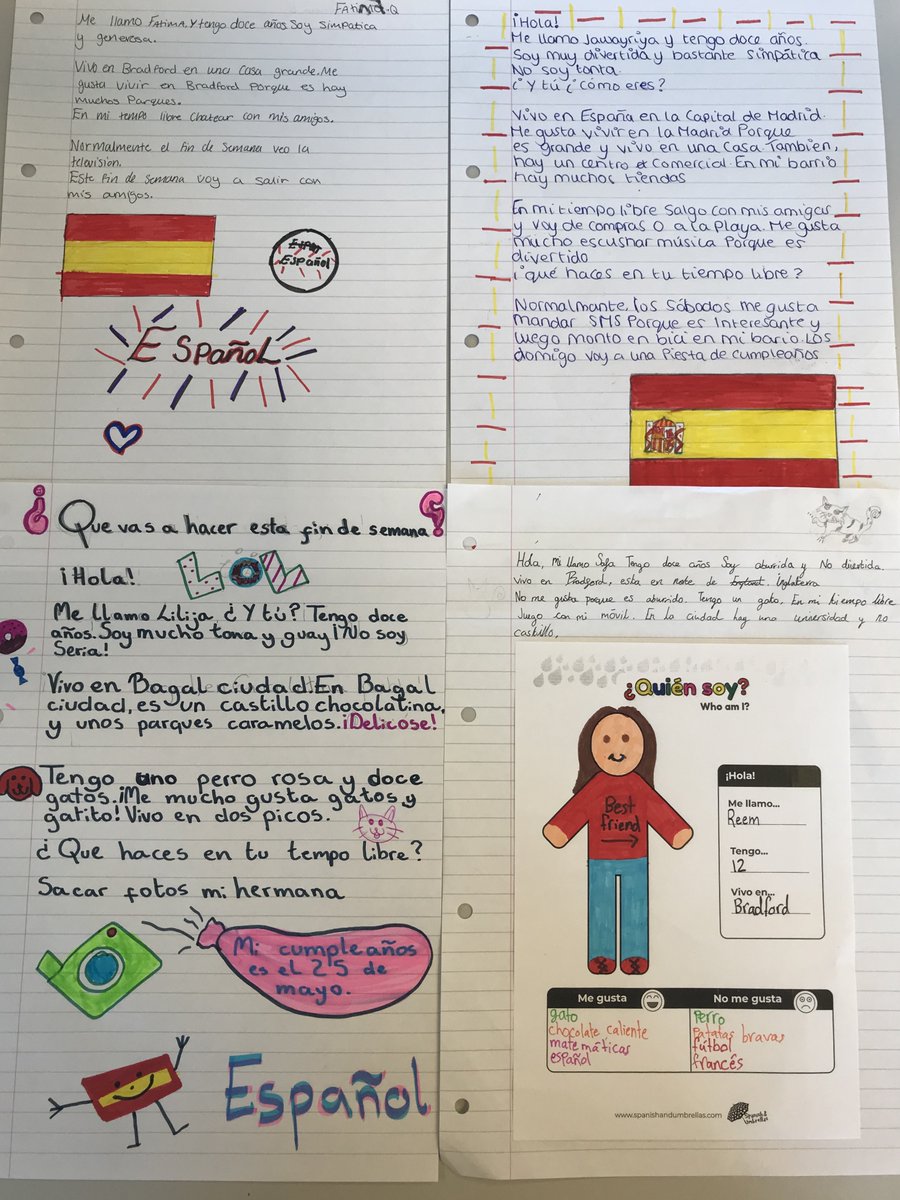 FAtima.Q
Me llamo FAtimA. Y tengo doce años. Soy Simpatica
y generosa.
Vivo en Bradford en una Casa grande. Me
gusta vivir en Bradford Porque es hay
muchos Parques.
En mi tempo libre Chatear con mis amigos.
Normalmente el fin de Semana veo la
television.
Este fin de Semana voy a salir con
mis amigos.
Español
ESpañoL
¡Hola!
Me llamo Jawayriya y tengo doce años.
Soy muy divertida y bastante simpática
No soy tonta.
¿Y tú ¿Cómo eres?
Vivo en España en la Capital de Madrid.
Me gusta vivir en la Madrid Porque
es grande y vivo en una Casa. Tambien,
hay un centro Comercial. En mi barrio
hay muchos tiendas
En mi tiempo libre Salgo con mis amigas
y voy de compras O a la Playa. Me gusta
mucho escushar música Porque es
divertido
¿qué haces en tu tiempo libre?
Normalmante, los Sábados me gusta
mandar SMS Porque es Interesante y
luego monto en bici en mi bario. Los
domigo voy a una Piesta de cumpleaños
¿Que vas a hacer esta fin de semana?
¡Hola! LOL
Me llamo Lilija, ¿Y tú? Tengo doce
años. Soy mucho tona y guay! ¡No soy
Seria!
Vivo en Bagal ciudad. En Bagal
ciudad, es un castillo chocolatina,
y unos parques caramelos. ¡Delicose!
Tengo uno perro rosa y doce
gatos. ¡Me mucho gusta gatos y
gatito! Vivo en dos picos.
¿Que haces en tu tempo libre?
Sacar fotos mi hermana
Mi cumpleaños
es el 25 de
mayo.
Español
Hola, mi llamo Safa Tengo doce años Soy aburrida y No divertida.
vivo en Bradford, esta en norte de Inglaterra
No me gusta porque es aburrido. Tengo un gato. En mi tiempo libre
Juego con mi móvil. En la ciudad hay una universidad y no
castillo.
¿Quién soy?
Who am I?
Best
friend
¡Hola!
Me llamo...
Reem
Tengo...
12
Vivo en...
Bradford
Me gusta No me gusta
gato perro
chocolate caliente Patatas bravas
matemáticas fútbol
español francés
www.spanishandumbrellas.com
Spanish &
Umbrellas